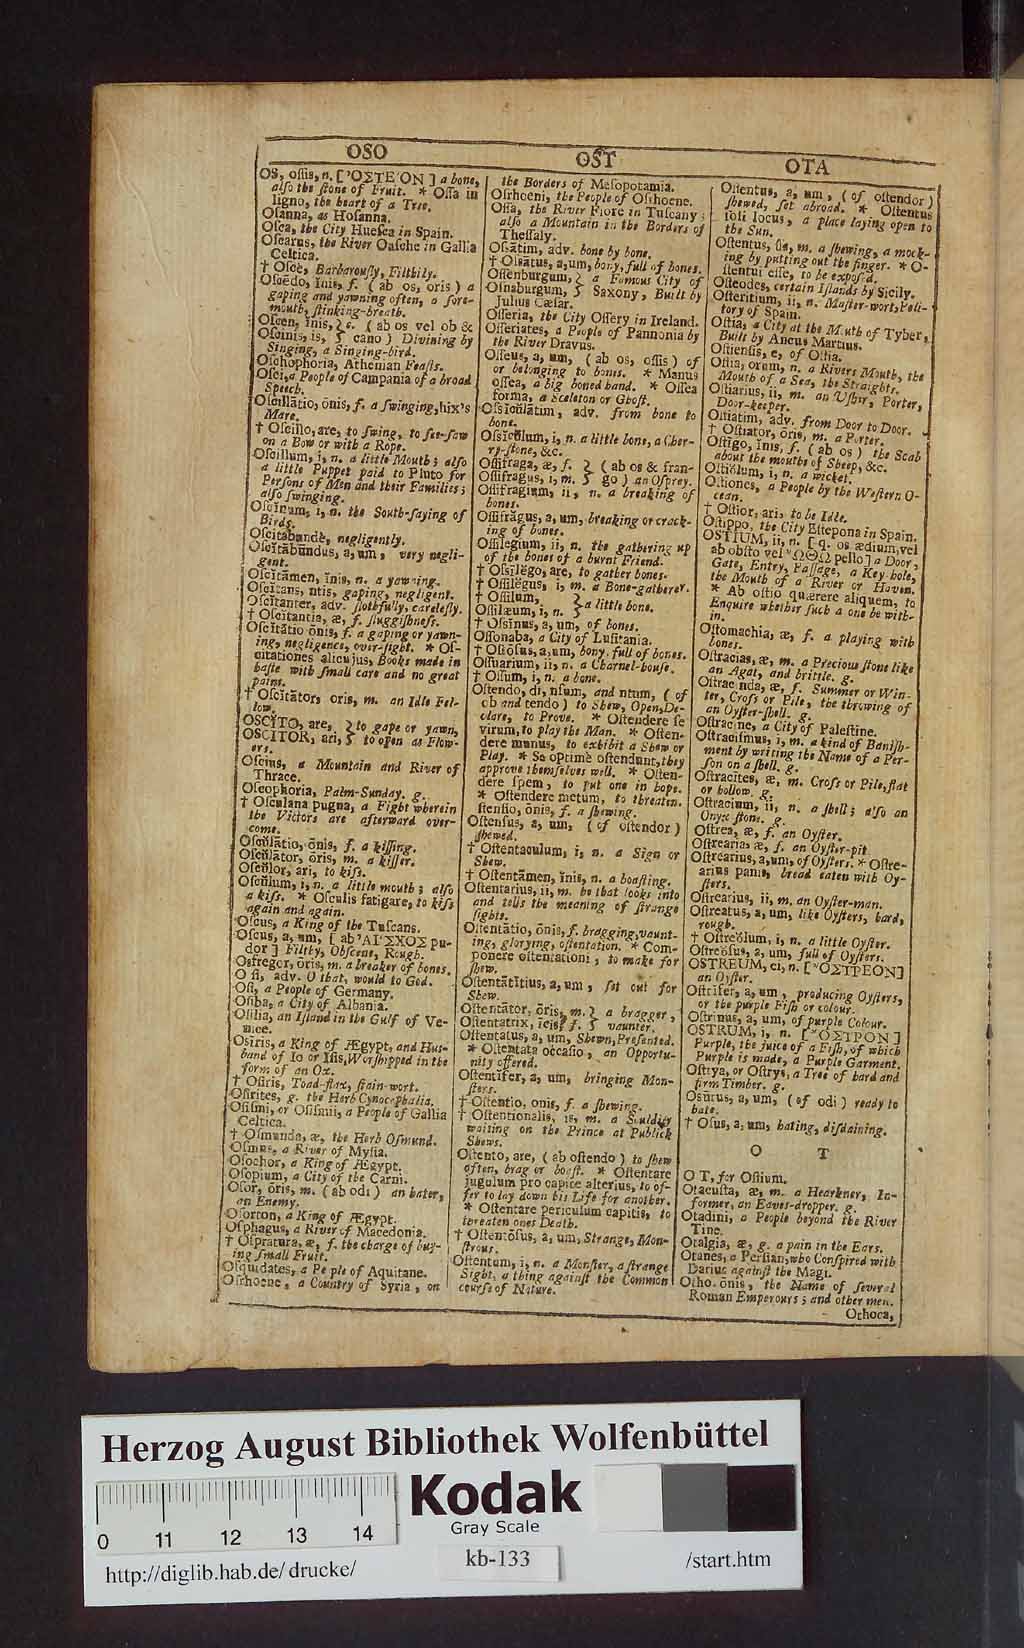 OSO
OS, oſſis, n. [ʼΟΣΤΕʼΟΝ] a bone,
alſo the ſtone of Fruit. * Oſſa in
ligno, the heart of a Tree.
Oſanna, as Hoſanna.
Oſca, the City Hueſca in Spain.
Oſcarus, the River Oaſche in Gallia
Celtica.
† Oſcè, Barbarouſly, Filthily.
Oſcēdo, ĭnis, f. (ab os, oris) a
gaping and yawning often, a ſore-
mouth, ſtinking-breath.
Oſcen, ĭnis, } c. (ab os vel ob &
Oſcinis, is, } cano) Divining by
Singing, a Singing-bird.
Oſchophoria, Athenian Feaſts.
Oſci, a People of Campania of a broad
Speech.
Oſcillātio, ōnis, f. a ſwinging, hix's
Mare.
† Oſcillo, are, to ſwing, to ſee-ſaw
on a Bow or with a Rope.
Oſcillum, i, n. a little Mouth; alſo
a little Puppet paid to Pluto for
Perſons of Men and their Families;
alſo ſwinging.
Oſcĭnum, i, n. the South-ſaying of
Birds.
Oſcitabundè, negligently.
Oſcĭtābundus, a, um, very negli-
gent.
Oſcĭtāmen, ĭnis, n. a yawning.
Oſcĭtans, ntis, gaping, negligent.
Oſcĭtanter, adv. ſlothfully, careleſly.
† Oſcitantia, æ, f. ſluggiſhneſs.
Oſcitātio ōnis, f. a gaping or yawn-
ing, negligence, over-ſight. * Oſ-
citationes alicujus, Books made in
haſte with ſmall care and no great
pains.
† Oſcĭtātor, oris, m. an Idle Fel-
low.
OSCĬTO, are, } to gape or yawn,
OSCITOR, ari, } to open as Flow-
ers.
Oſcius, a Mountain and River of
Thrace.
Oſcophoria, Palm-Sunday. g.
† Oſculana pugna, a Fight wherein
the Victors are afterward over-
come.
Oſcŭlātio, ōnis, f. a kiſſing.
Oſcŭlātor, ōris, m. a kiſſer.
Oſcŭlor, ari, to kiſs.
Oſcŭlum, i, n. a little mouth; alſo
a kiſs. * Oſculis fatigare, to kiſs
again and again.
Oſcus, a King of the Tuſcans.
Oſcus, a, um, [ab ʼΑΙʼΣΧΟΣ pu-
dor] Filthy, Obſcene, Rough.
Osfregor, ōris, m. a breaker of bones.
O ſi, adv. O that, would to God.
Oſi, a People of Germany.
Oſiba, a City of Albania.
Oſilia, an Iſland in the Gulf of Ve-
nice.
Osiris, a King of Ægypt, and Hus-
band of Io or Iſis, Worſhipped in the
form of an Ox.
† Oſiris, Toad-flax, ſtain-wort.
Oſirites, g. the Herb Cynocephalia.
Oſiſmi, or Oſiſmii, a People of Gallia
Celtica.
† Oſmunda, æ, the Herb Oſmund.
Oſmus, a River of Myſia.
Oſochor, a King of Ægypt.
Oſopium, a City of the Carni.
Oſor, ōris, m. (ab odi) an hater,
an Enemy.
Oſorton, a King of Ægypt.
Oſphagus, a River of Macedonia.
† Oſpratura, æ, f. the charge of buy-
ing ſmall Fruit.
Oſquidates, a People of Aquitane.
Oſrhoene, a Country of Syria, on
OST
the Borders of Meſopotamia.
Oſrhoeni, the People of Oſrhoene.
Oſſa, the River Fiore in Tuſcany;
alſo a Mountain in the Borders of
Theſſaly.
Oſsātim, adv. bone by bone.
† Oſsātus, a, um, bony, full of bones.
Oſſenburgum, } a Famous City of
Oſnaburgum, } Saxony, Built by
Julius Cæſar.
Oſſeria, the City Oſſery in Ireland.
Oſſeriates, a People of Pannonia by
the River Dravus.
Oſſeus, a, um, (ab os, oſſis) of
or belonging to bones. * Manus
oſſea, a big boned hand. * Oſſea
forma, a Sceleton or Ghoſt.
Oſsĭcŭlātim, adv. from bone to
bone.
Oſsĭcŭlum, i, n. a little bone, a Cher-
ry-ſtone, &c.
Oſſifraga, æ, f. } (ab os & fran-
Oſſifragus, i, m. } go) an Oſprey.
Oſſifragium, ii, n. a breaking of
bones.
Oſſifrăgus, a, um, breaking or crack-
ing of bones.
Oſſilegium, ii, n. the gathering up
of the bones of a burnt Friend.
† Oſsĭlĕgo, are, to gather bones.
† Oſſilĕgus, i, m. a Bone-gatherer.
† Oſſilum, } a little bone.
Oſſilæum, i, n. }
† Oſsĭnus, a, um, of bones.
Oſſonaba, a City of Luſitania.
† Oſſōſus, a, um, bony, full of bones.
Oſſuarium, ii, n. a Charnel-houſe.
† Oſſum, i, n. a bone.
Oſtendo, di, nſum, and ntum, (of
ob and tendo) to Shew, Open, De-
clare, to Prove. * Oſtendere ſe
virum, to play the Man. * Oſten-
dere munus, to exhibit a Shew or
Play. * Se optimè oſtendunt, they
approve themſelves well. * Oſten-
dere ſpem, to put one in hope.
* Oſtendere metum, to threaten.
ſtenſio, ōnis, f. a ſhewing.
Oſtenſus, a, um, (of oſtendor)
ſhewed.
† Oſtentaculum, i, n. a Sign or
Shew.
† Oſtentāmen, ĭnis, n. a boaſting.
Oſtentarius, ii, m. he that looks into
and tells the meaning of ſtrange
ſights.
Oſtentātio, ōnis, f. bragging, vaunt-
ing, glorying, oſtentation. * Com-
ponere oſtentationi, to make for
ſhew.
Oſtentātĭtius, a, um, ſet out for
Shew.
Oſtentātor, ōris, m. } a bragger,
Oſtentatrix, īcis, f. } vaunter.
Oſtentatus, a, um, Shewn, Preſented.
* Oſtentata occaſio, an Opportu-
nity offered.
Oſtentĭfer, a, um, bringing Mon-
ſters.
† Oſtentio, onis, f. a ſhewing.
† Oſtentionalis, is, m. a Souldier
waiting on the Prince at Publick
Shews.
Oſtento, are, (ab oſtendo) to ſhew
often, brag or boaſt. * Oſtentare
jugulum pro capite alterius, to of-
fer to lay down his Life for another.
* Oſtentare periculum capitis, to
threaten ones Death.
† Oſtentōſus, a, um, Strange, Mon-
ſtrous.
Oſtentum, i, n. a Monſter, a ſtrange
Sight, a thing againſt the Common
courſe of Nature.
OTA
Oſtentus, a, um, (of oſtendor)
ſhewed, ſet abroad. * Oſtentus
ſoli locus, a place laying open to
the Sun.
Oſtentus, ûs, m. a ſhewing, a mock-
ing by putting out the finger. * O-
ſtentui eſſe, to be expoſ'd.
Oſteodes, certain Iſlands by Sicily.
Oſteritium, ii, n. Maſter-wort, Peli-
tory of Spain.
Oſtia, a City at the Mouth of Tyber,
Built by Ancus Martius.
Oſtienſis, e, of Oſtia.
Oſtia, orum, n. a Rivers Mouth, the
Mouth of a Sea, the Straights.
Oſtiarius, ii, m. an Uſher, Porter,
Door-keeper.
Oſtiatim, adv. from Door to Door.
† Oſtiator, ōris, m. a Porter.
Oſtīgo, ĭnis, f. (ab os) the Scab
about the mouths of Sheep, &c.
Oſtiŏlum, i, n. a wicket.
Oſtiones, a People by the Weſtern O-
cean.
† Oſtior, ari, to be Idle.
Oſtippo, the City Eſtepona in Spain.
OSTIUM, ii, n. [q. os ædium, vel
ab obſto vel ʼΩΘΩ͂ pello] a Door,
Gate, Entry, Paſſage, a Key-hole,
the Mouth of a River or Haven.
* Ab oſtio quærere aliquem, to
Enquire whether ſuch a one be with-
in.
Oſtomachia, æ, f. a playing with
bones.
Oſtracias, æ, m. a Precious ſtone like
an Agat, and brittle. g.
Oſtracinda, æ, f. Summer or Win-
ter, Croſs or Pile, the throwing of
an Oyſter-ſhell. g.
Oſtracine, a City of Paleſtine.
Oſtraciſmus, i, m. a kind of Baniſh-
ment by writing the Name of a Per-
ſon on a ſhell. g.
Oſtracites, æ, m. Croſs or Pile, flat
or hollow. g.
Oſtracium, ii, n. a ſhell; alſo an
Onyx ſtone. g.
Oſtrea, æ, f. an Oyſter.
Oſtrearia, æ, f. an Oyſter-pit.
Oſtrearius, a, um, of Oyſters. * Oſtre-
arius panis, bread eaten with Oy-
ſters.
Oſtrearius, ii, m. an Oyſter-man.
Oſtreatus, a, um, like Oyſters, hard,
rough.
† Oſtreŏlum, i, n. a little Oyſter.
Oſtreōſus, a, um, full of Oyſters.
OSTREUM, ei, n. [ʼΌΣΤΡΕΟΝ]
an Oyſter.
Oſtrĭfer, a, um, producing Oyſters,
or the purple Fiſh or colour.
Oſtrinus, a, um, of purple Colour.
OSTRUM, i, n. [ʼΌΣΤΡΟΝ]
Purple, the juice of a Fiſh, of which
Purple is made, a Purple Garment.
Oſtrya, or Oſtrys, a Tree of hard and
firm Timber. g.
Osūrus, a, um, (of odi) ready to
hate.
† Oſus, a, um, hating, diſdaining.
O T
O T, for Oſtium.
Otacuſta, æ, m. a Hearkner, In-
former, an Eaves-dropper. g.
Otadini, a People beyond the River
Tine.
Otalgia, æ, g. a pain in the Ears.
Otanes, a Perſian, who Conſpired with
Darius againſt the Magi.
Otho, ōnis, the Name of ſeveral
Roman Emperours; and other men.
Othoca,
Herzog August Bibliothek Wolfenbüttel
0 11 12 13 14
Kodak
Gray Scale
kb-133
http://diglib.hab.de/drucke/
/start.htm